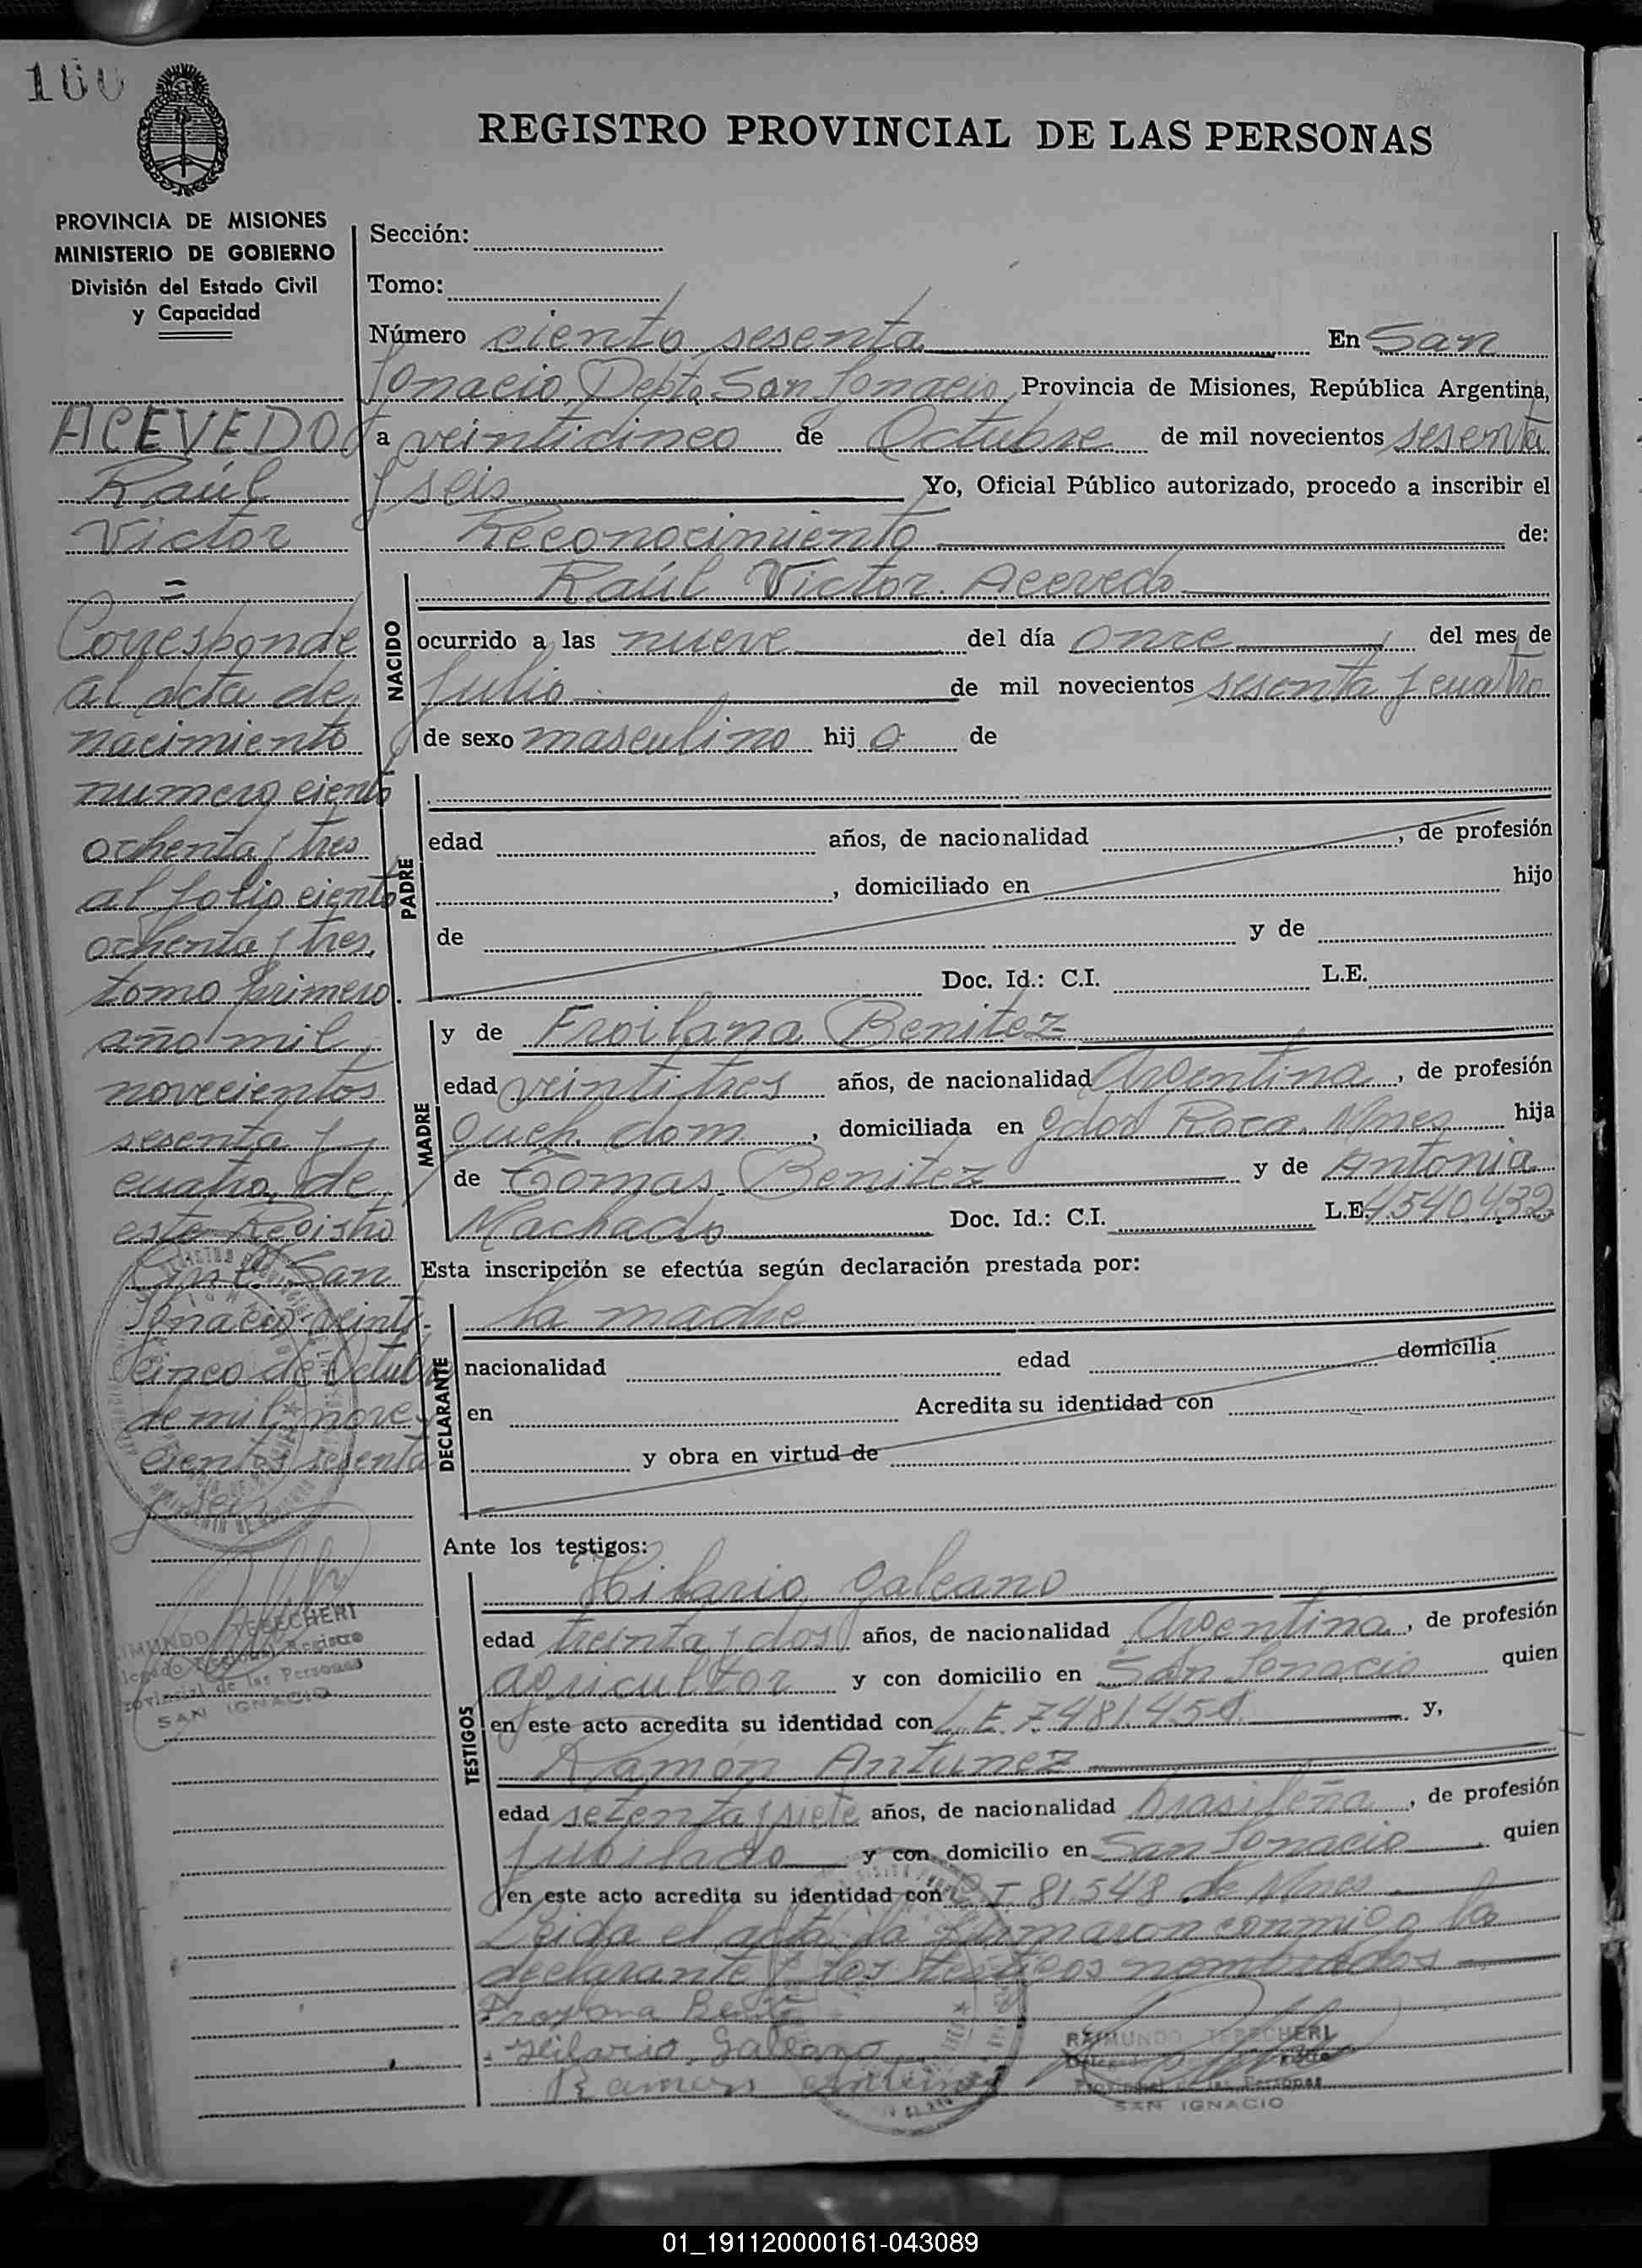 160
REGISTRO PROVINCIAL DE LAS PERSONAS
PROVINCIA DE MISIONES
MINISTERIO DE GOBIERNO
División del Estado Civil
y Capacidad
ACEVEDO
Raúl
Victor
=
Corresponde
al acta de
nacimiento
numero ciento
ochenta y tres
al folio ciento
ochenta y tres,
tomo primero.
año mil
novecientos
sesenta y
cuatro, de
este Registro
San
Ignacio veinti-
cinco de Octubre
de mil nove-
cientos sesenta
y seis
RAIMUNDO TEBECHERI
Delegado Registro
Provincial de las Personas
SAN IGNACIO
Sección:
Tomo:
Número ciento sesenta En San
Ignacio, Depto San Ignacio, Provincia de Misiones, República Argentina,
a veinticinco de Octubre de mil novecientos sesenta
y seis Yo, Oficial Público autorizado, procedo a inscribir el
Reconocimiento de:
NACIDO
Raúl Victor Acevedo
ocurrido a las nueve del día once del mes de
Julio de mil novecientos sesenta y cuatro
de sexo masculino hijo de
PADRE
edad años, de nacionalidad , de profesión
, domiciliado en hijo
de y de
Doc. Id.: C.I. L.E.
MADRE
y de Froilana Benitez
edad veintitres años, de nacionalidad Argentina, de profesión
Queh. dom , domiciliada en Gdor Roca. Mnes hija
de Tomas Benitez y de Antonia
Machado Doc. Id.: C.I. L.E. 4540.432
Esta inscripción se efectúa según declaración prestada por:
DECLARANTE
la madre
nacionalidad edad domicilia
en Acredita su identidad con
y obra en virtud de
Ante los testigos:
TESTIGOS
Hilario Galeano
edad treinta y dos años, de nacionalidad Argentina, de profesión
agricultor y con domicilio en San Ignacio quien
en este acto acredita su identidad con L E 7481.458 y,
Ramón Antunez
edad setenta y siete años, de nacionalidad brasileña, de profesión
Jubilado y con domicilio en San Ignacio quien
en este acto acredita su identidad con C I 81.548 de Mnes
Leida el acta la firmaron conmigo la
declarante y los testigos nombrados
Hilario Galeano
Ramon
RAIMUNDO TEBECHERI
Provincial de las Personas
SAN IGNACIO
01_191120000161-043089